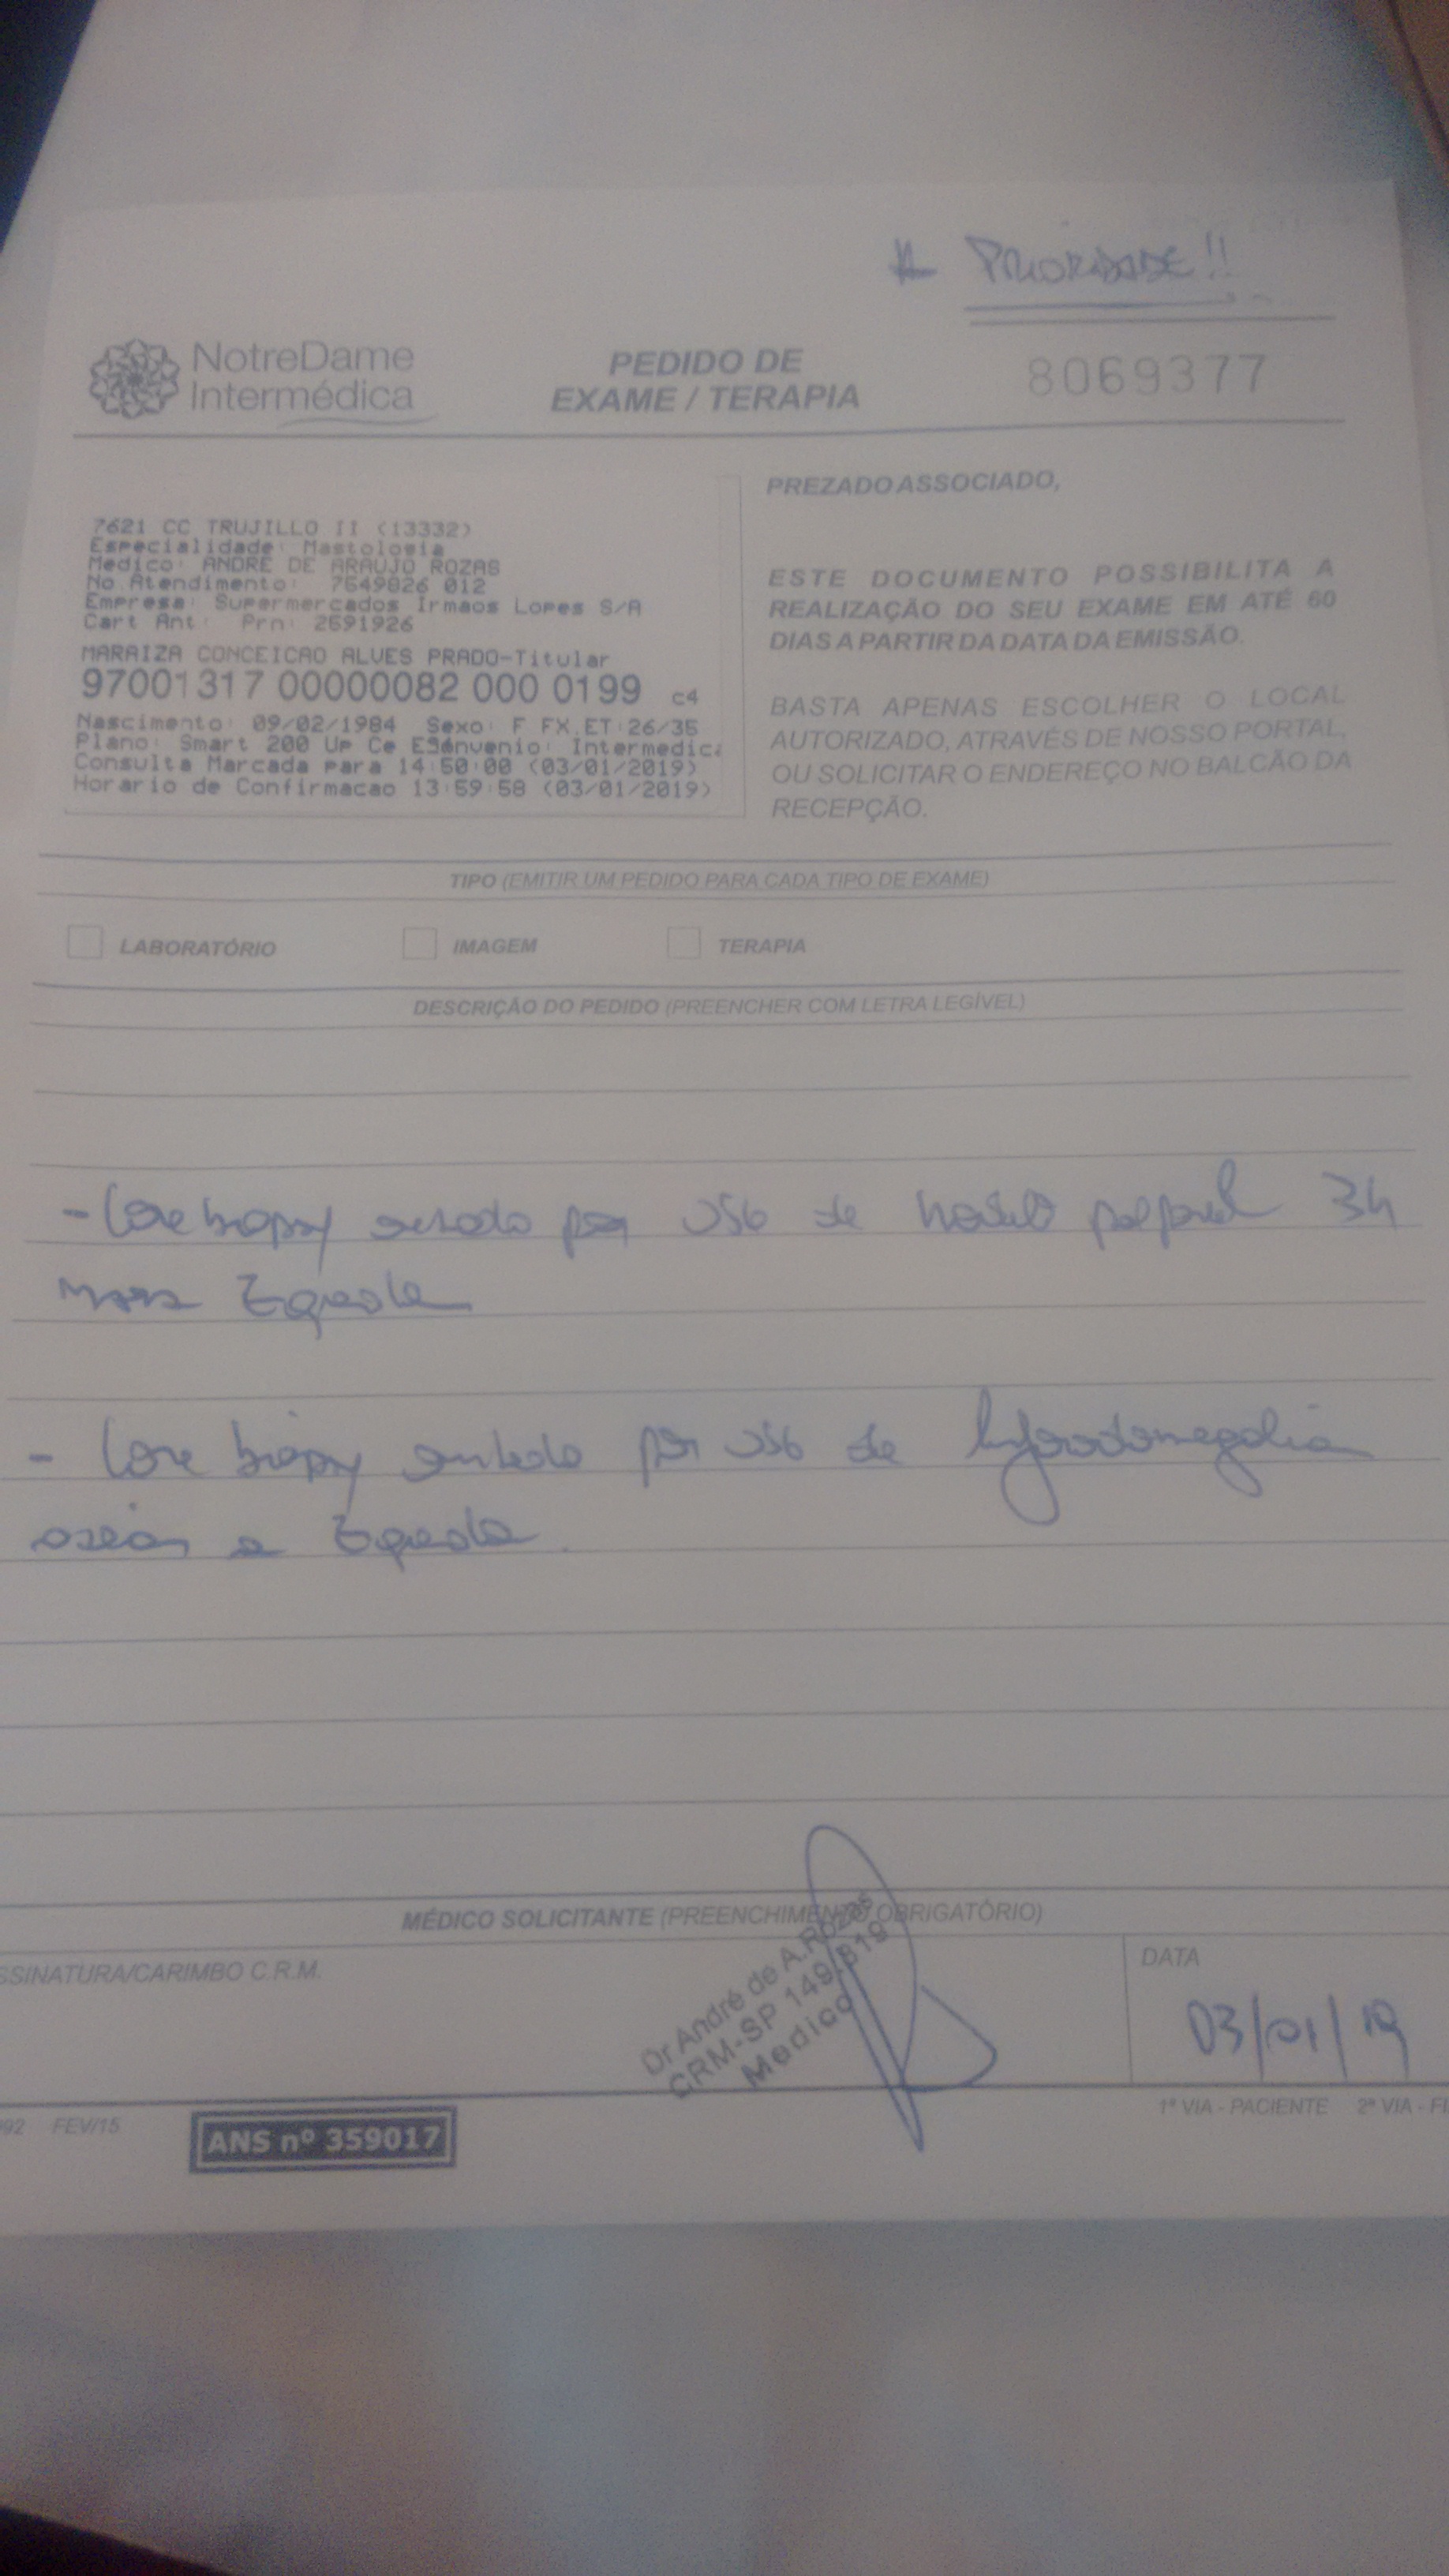 * PRIORIDADE!!
NotreDame
Intermédica
PEDIDO DE
EXAME / TERAPIA
8069377
7621 CC TRUJILLO II (13332)
Especialidade: Mastologia
Medico: ANDRE DE ARAUJO ROZAS
No.Atendimento: 7549826 012
Empresa: Supermercados Irmaos Lopes S/A
Cart Ant.: Prn: 2591926
MARAIZA CONCEICAO ALVES PRADO-Titular
97001317 00000082 000 0199 c4
Nascimento: 09/02/1984 Sexo: F FX.ET:26/35
Plano: Smart 200 Up Ce Intermedica
Consulta Marcada para 14:50:00 (03/01/2019)
Horario de Confirmacao 13:59:58 (03/01/2019)
PREZADO ASSOCIADO,
ESTE DOCUMENTO POSSIBILITA A
REALIZAÇÃO DO SEU EXAME EM ATÉ 60
DIAS A PARTIR DA DATA DA EMISSÃO.
BASTA APENAS ESCOLHER O LOCAL
AUTORIZADO, ATRAVÉS DE NOSSO PORTAL,
OU SOLICITAR O ENDEREÇO NO BALCÃO DA
RECEPÇÃO.
TIPO (EMITIR UM PEDIDO PARA CADA TIPO DE EXAME)
LABORATÓRIO IMAGEM TERAPIA
DESCRIÇÃO DO PEDIDO (PREENCHER COM LETRA LEGÍVEL)
- Core biopsy guiada por USG de nódulo palpável 3h
mama Esquerda
- Core biopsy guiada por USG de linfonodomegalia
axilar a Esquerda.
MÉDICO SOLICITANTE (PREENCHIMENTO OBRIGATÓRIO)
SSINATURA/CARIMBO C.R.M.
Dr André de A.Rozas
CRM-SP 149.819
Medico
DATA
03/01/19
092 FEV/15
ANS nº 359017
1ª VIA - PACIENTE 2ª VIA - FI